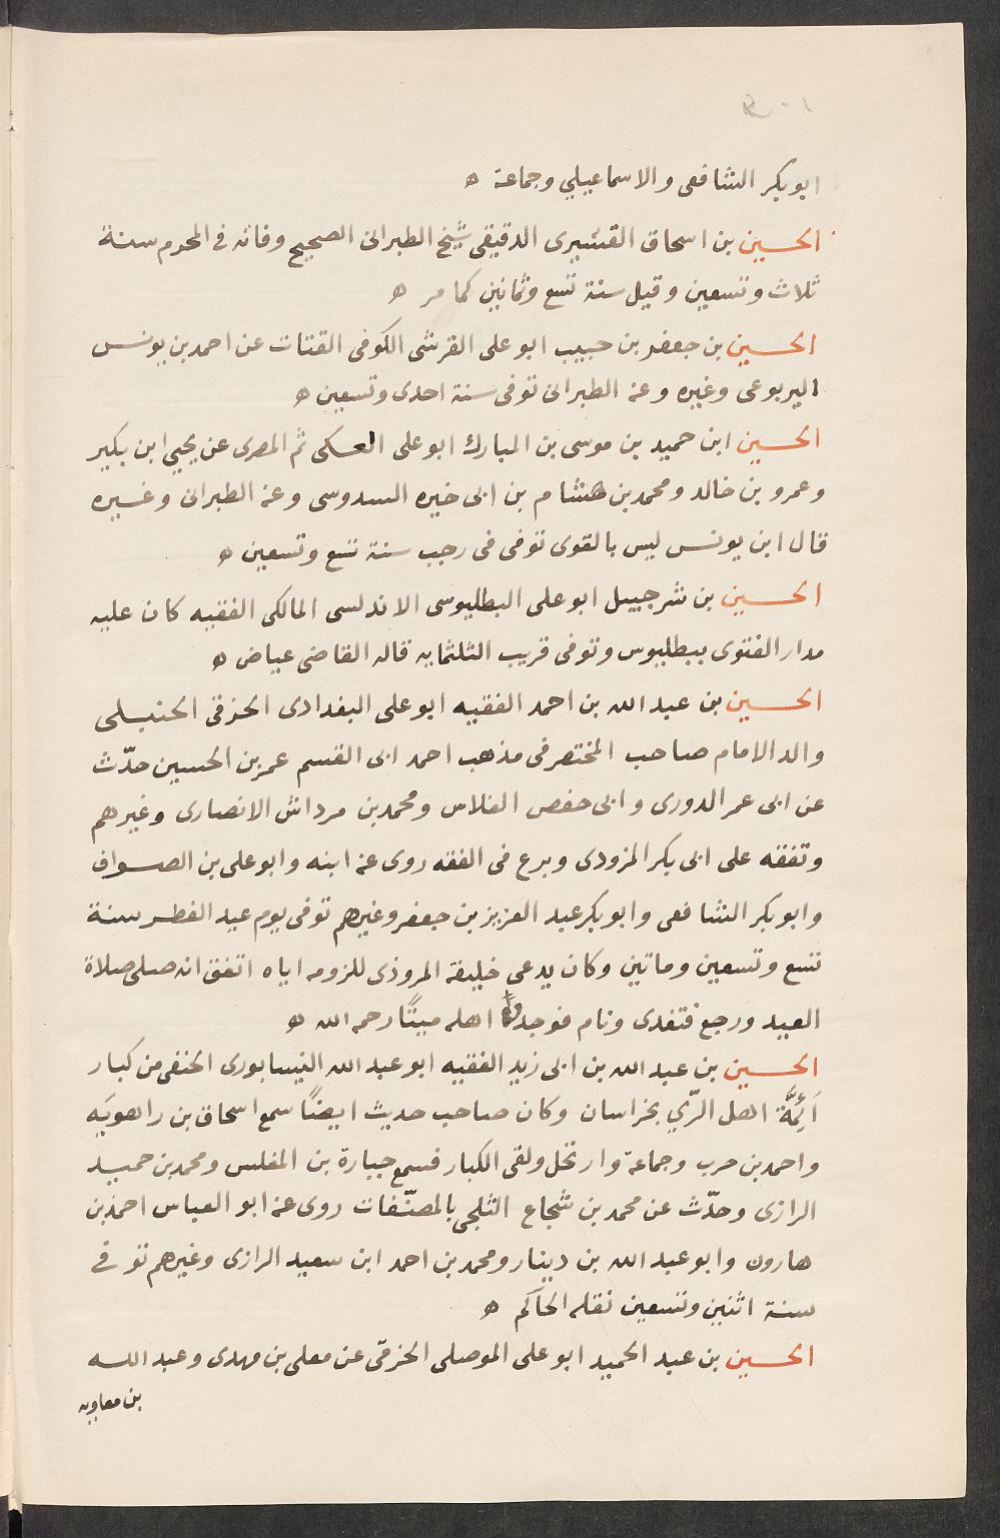 ابو بكر الشافعى والاسماعيلي وجماعة ه
الحسين بن اسحاق القشيرى الدقيقى شيخ الطبرانى الصحيح وفاته فى المحرم سنة
ثلاث وتسعين وقيل سنة تسع وثمانين كما مر ه
الحسين بن جعفر بن حبيب ابو على القرشى الكوفى القتات عن احمد بن يونس
اليربوعى وغيره وعنه الطبرانى توفى سنة احدى وتسعين ه
الحسين ابن حميد بن موسى بن المبارك ابو على العكى ثم المصرى عن يحيى ابن بكير
وعمرو بن خالد ومحمد بن هشام بن ابى خيره السدوسى وعنه الطبرانى وغيره
قال ابن يونس ليس بالقوى توفى فى رجب سنة تسع وتسعين ه
الحسين بن شرحبيل ابو على البطليوسى الاندلسى المالكى الفقيه كان عليه
مدار الفتوى ببطليوس وتوفى قريب الثلثمايه قاله القاضى عياض ه
الحسين بن عبد الله بن احمد الفقيه ابو على البغدادى الخرقى الحنبلى
والد الامام صاحب المختصر فى مذهب احمد ابى القسم عمر بن الحسين حدّث
عن ابى عمر الدورى وابى حفص الفلاس ومحمد بن مرداش الانصارى وغيرهم
وتفقه على ابى بكر المزودى وبرع فى الفقه روى عنه ابنه وابو على بن الصواف
وابو بكر الشافعى وابو بكر عبد العزيز بن جعفر وغيرهم توفى يوم عيد الفطر سنة
تسع وتسعين وماتين وكان يدعى خليفة المروذى للزومه اياه اتفق انه صلى صلاة
العيد ورجع فتغدى ونام فوجده اهله ميتًا رحمه الله ه
الحسين بن عبد الله بن ابى زيد الفقيه ابو عبد الله النيسابورى الحنفى من كبار
اَئِمَّة اهل الرّي بخراسان وكان صاحب حديث ايضًا سمع اسحاق بن راهويَه
واحمد بن حرب وجماعة وارتحل ولقى الكبار فسمع جبارة بن المغلس ومحمد بن حميد
الرازى وحدّث عن محمد بن شجاع الثلجى بالمصنّفات روى عنه ابو العباس احمد بن
هارون وابو عبد الله بن دينار ومحمد بن احمد ابن سعيد الرازى وغيرهم توفى
سنة اثنين وتسعين نقله الحاكم ه
الحسين بن عبد الحميد ابو على الموصلى الخرقى عن معلى بن مهدى وعبد الله
بن معاويه